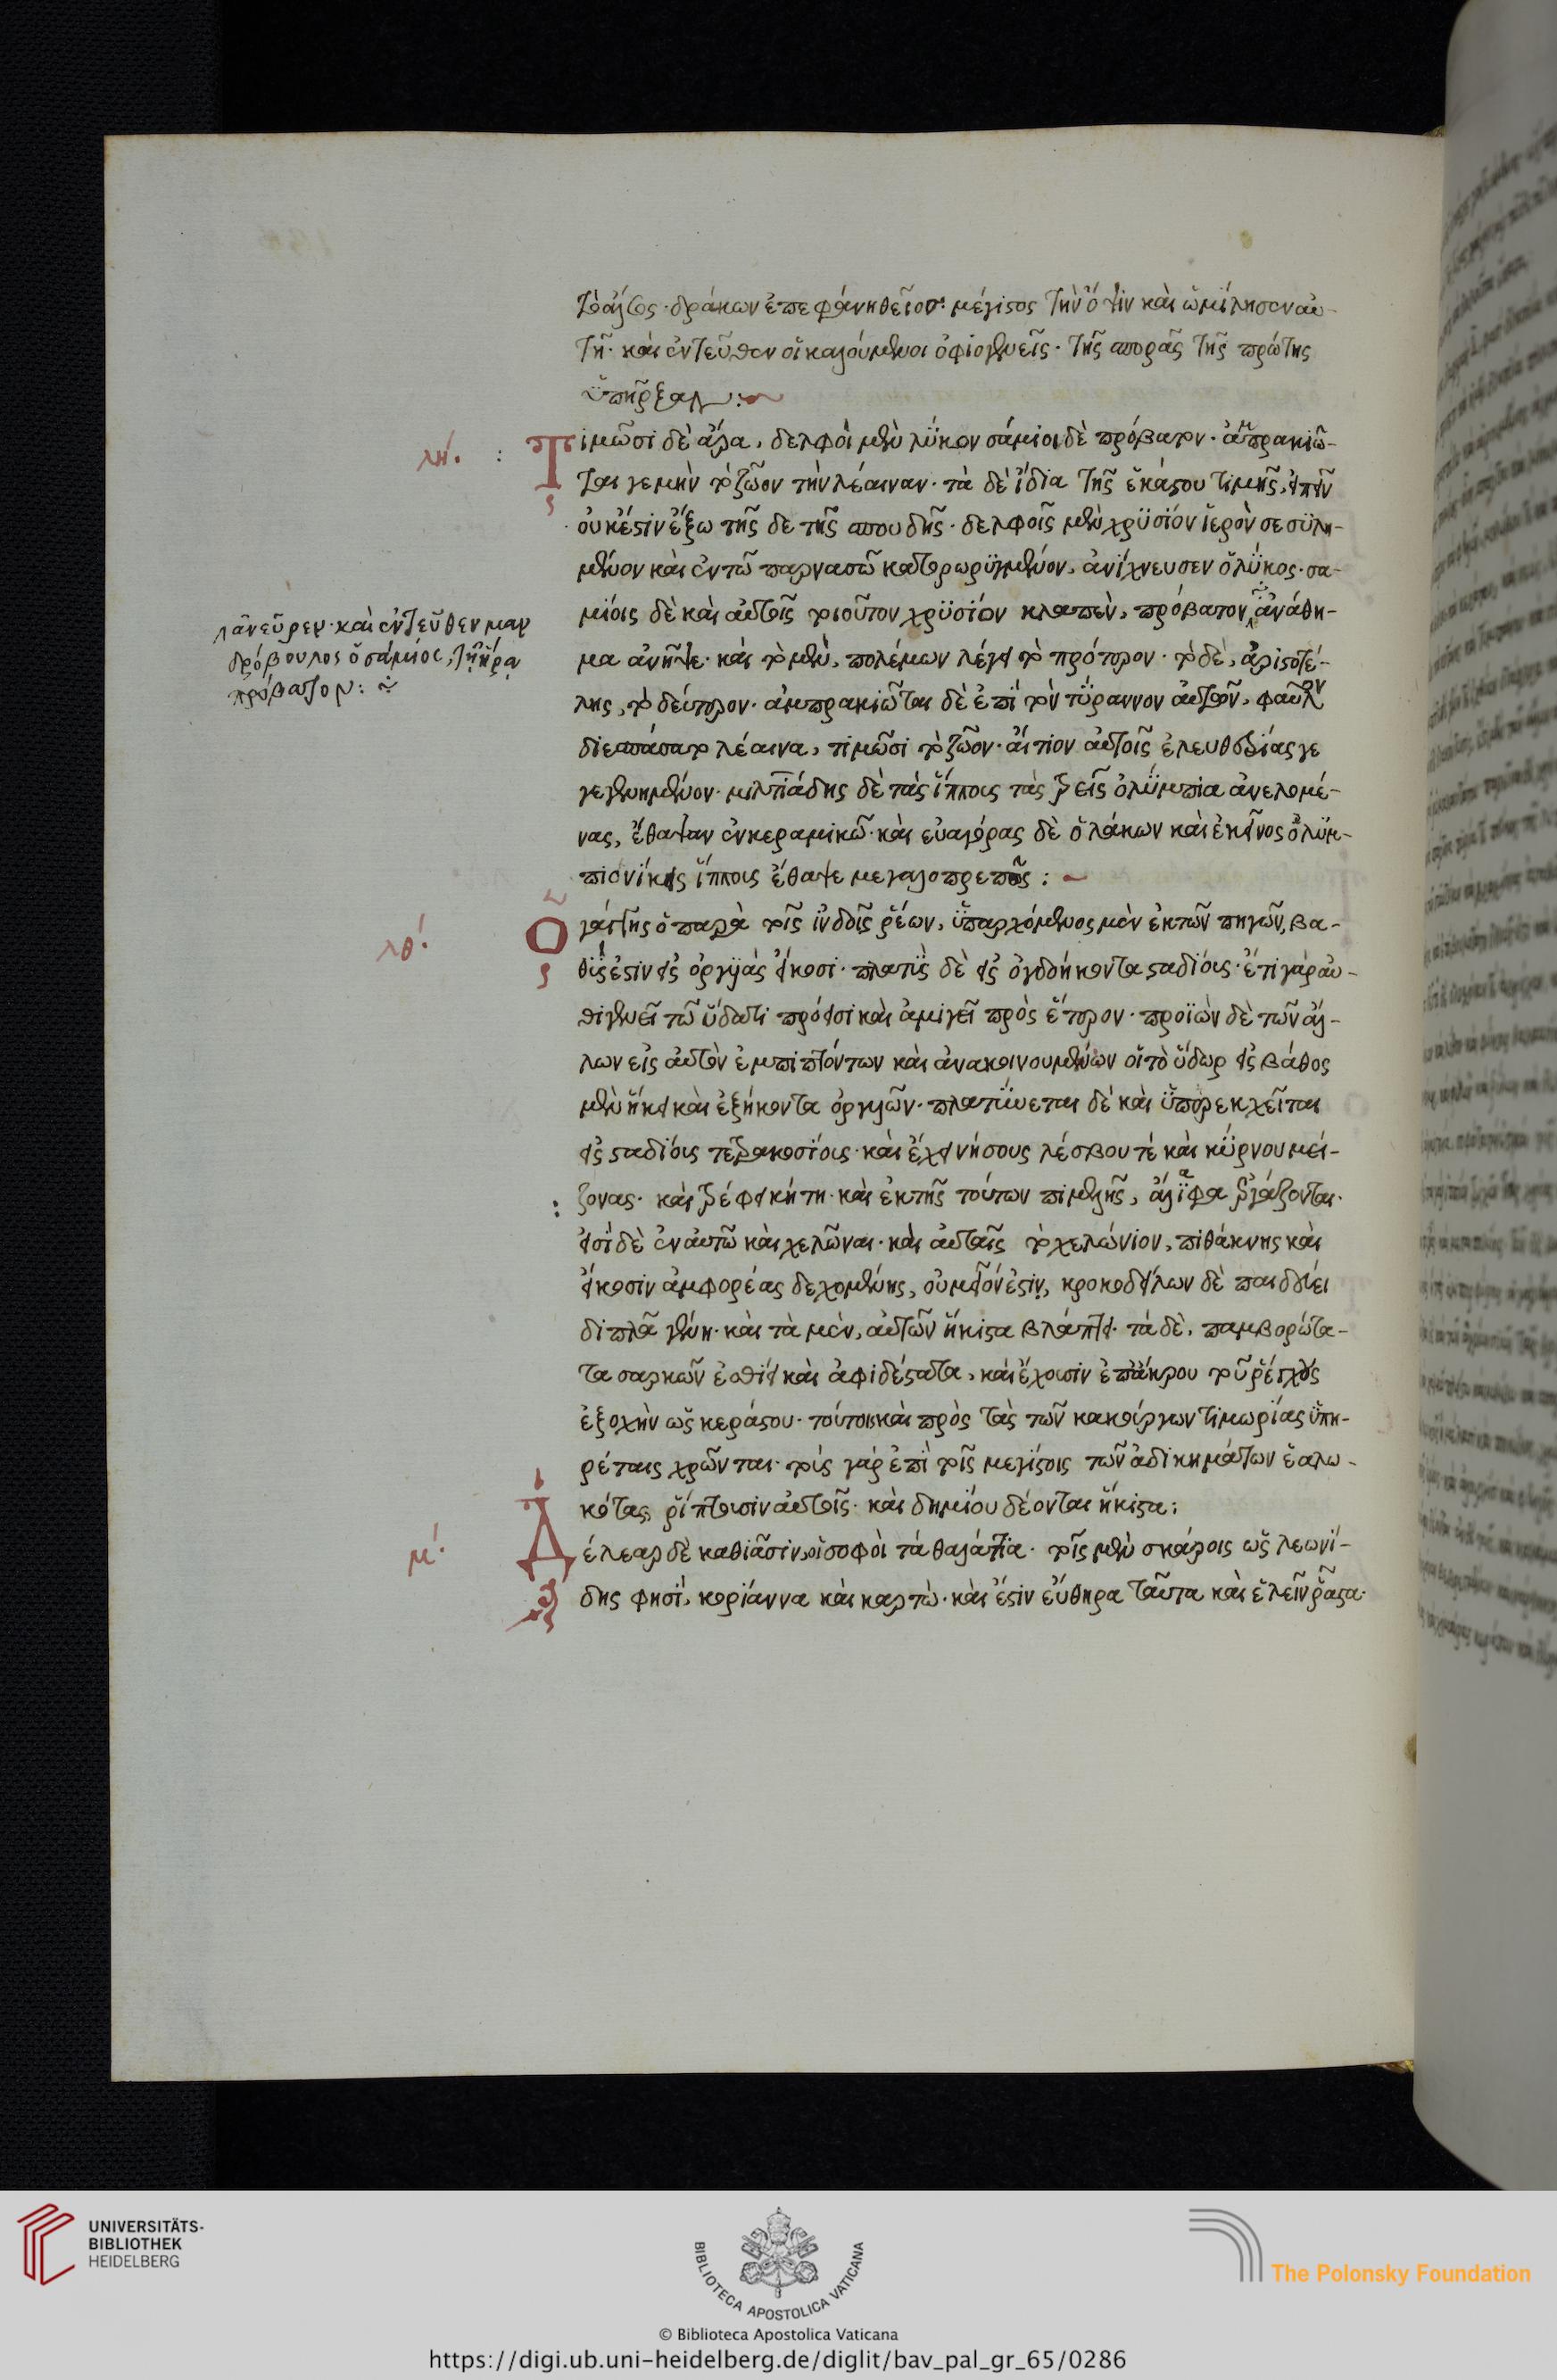 τὸ ἄλσος· δράκων ἐπεφάνη θεῖος· μέγιστος τὴν ὄψιν καὶ ὡμίλησεν αὐ-
τῇ· καὶ ἐντεῦθεν οἱ καλούμενοι ὀφιογενεῖς· τῆς σπορᾶς τῆς πρώτης
ὑπῆρξαν:~
λη΄. : Τιμῶσι δὲ ἄρα, δελφοὶ μὲν λύκον σάμιοι δὲ πρόβατον· ἀμπρακιῶ-
ται γεμὴν τὸ ζῶον τὴν λέαιναν· τὰ δὲ ἴδια τῆς ἑκάστου τιμῆς, εἰπεῖν
οὐκέστιν ἔξω τῆς δε τῆς σπουδῆς· δελφοῖς μὲν χρυσίον ἱερὸν σεσυλη-
μένον καὶ ἐν τῶ παρνασῶ κατορωρυγμένον, ἀνίχνευσεν ὁ λύκος· σα-
μίοις δὲ καὶ αὐτοῖς τοιοῦτον χρυσίον κλαπὲν, πρόβατον, ἀνάθη-
λανεῦρεν· καὶ ἐντεῦθεν μαν
δρόβουλος ὁ σάμιος, τῆ ἥρα
πρόβατον:
μα ἀνῆψε· καὶ τὸ μὲν, πολέμων λέγει τὸ πρότερον· τὸ δὲ, ἀριστοτέ-
λης, τὸ δεύτερον· ἀμπρακιῶται δὲ ἐπὶ τὸν τύραννον αὐτῶν, φαῦλον
διεσπάσατο λέαινα, τιμῶσι τὸ ζῶον· αἴτιον αὐτοῖς ἐλευθερίας γε
γεγενημένον· μιλτιάδης δὲ τὰς ἵππους τὰς τρεῖς ὀλύμπια ἀνελομέ-
νας, ἔθαψαν ἐν κεραμικῶ· καὶ εὐαγόρας δὲ ὁ λάκων καὶ ἐκεῖνος ὀλυμ-
πιονίκεις ἵππους ἔθαψε μεγαλοπρεπῶς :~
λθ΄. Ὁ γάγγης ὁ παρὰ τοῖς ἰνδοῖς ῥέων, ὑπαρχόμενος μὲν ἐκ τῶν πηγῶν, βα-
θύς ἐστιν εἰς ὀργυιὰς εἴκοσι· πλατὺς δὲ εἰς ὀγδοήκοντα σταδίους· ἔτι γὰρ αὐ-
θιγενεῖ τῶ ὕδατι πρόεισι καὶ ἀμιγεῖ πρὸς ἕτερον· προϊὼν δὲ τῶν ἄλ-
λων εἰς αὐτὸν ἐμπιπτόντων καὶ ἀνακοινουμένων οἱ τὸ ὕδωρ εἰς βάθος
μὲν ἥκει καὶ ἑξήκοντα ὀργυιῶν· πλατύνεται δὲ καὶ ὑπερεκχεῖται
εἰς σταδίους τετρακοσίους· καὶ ἔχει νήσους λέσβου τὲ καὶ κύρνου μεί-
: ζονας· καὶ τρέφει κήτη· καὶ ἐκ τῆς τούτων πιμελῆς, ἄλειφα ἐργάζονται·
εἰσὶ δὲ ἐν αὐτῶ καὶ χελῶναι· καὶ αὐταῖς τὸ χελώνιον, πιθάκνης καὶ
εἴκοσιν ἀμφορέας δεχομένης, οὐ μεῖόν ἐστιν, κροκοδείλων δὲ παιδεύει
διπλᾶ γένη· καὶ τὰ μὲν, αὐτῶν ἥκιστα βλάπτει· τὰ δὲ, παμβορώτα-
τα σαρκῶν ἐσθίει καὶ ἀφιδέστατα, καὶ ἔχουσιν ἐπάκρου τοῦ ῥέγχους
ἐξοχὴν ὡς κεράστου· τούτοις καὶ πρὸς τὰς τῶν κακούργων τιμωρίας ὑπη-
ρέταις χρῶνται· τοὺς γὰρ ἐπὶ τοῖς μεγίστοις τῶν ἀδικημάτων ἑαλω-
κότας, ῥίπτουσιν αὐτοῖς· καὶ δημίου δέονται ἥκιστα:
μ΄. Δέλεαρ δὲ καθιᾶσιν, οἱ σοφοὶ τὰ θαλάττια· τοῖς μὲν σκάροις ὡς λεωνί-
δης φησὶ, κορίαννα καὶ καρτὼ· καὶ ἔστιν εὔθηρα ταῦτα καὶ ἑλεῖν ῥᾶστα·
UNIVERSITÄTS-
BIBLIOTHEK
HEIDELBERG
BIBLIOTECA APOSTOLICA VATICANA
The Polonsky Foundation
© Biblioteca Apostolica Vaticana
https://digi.ub.uni-heidelberg.de/diglit/bav_pal_gr_65/0286